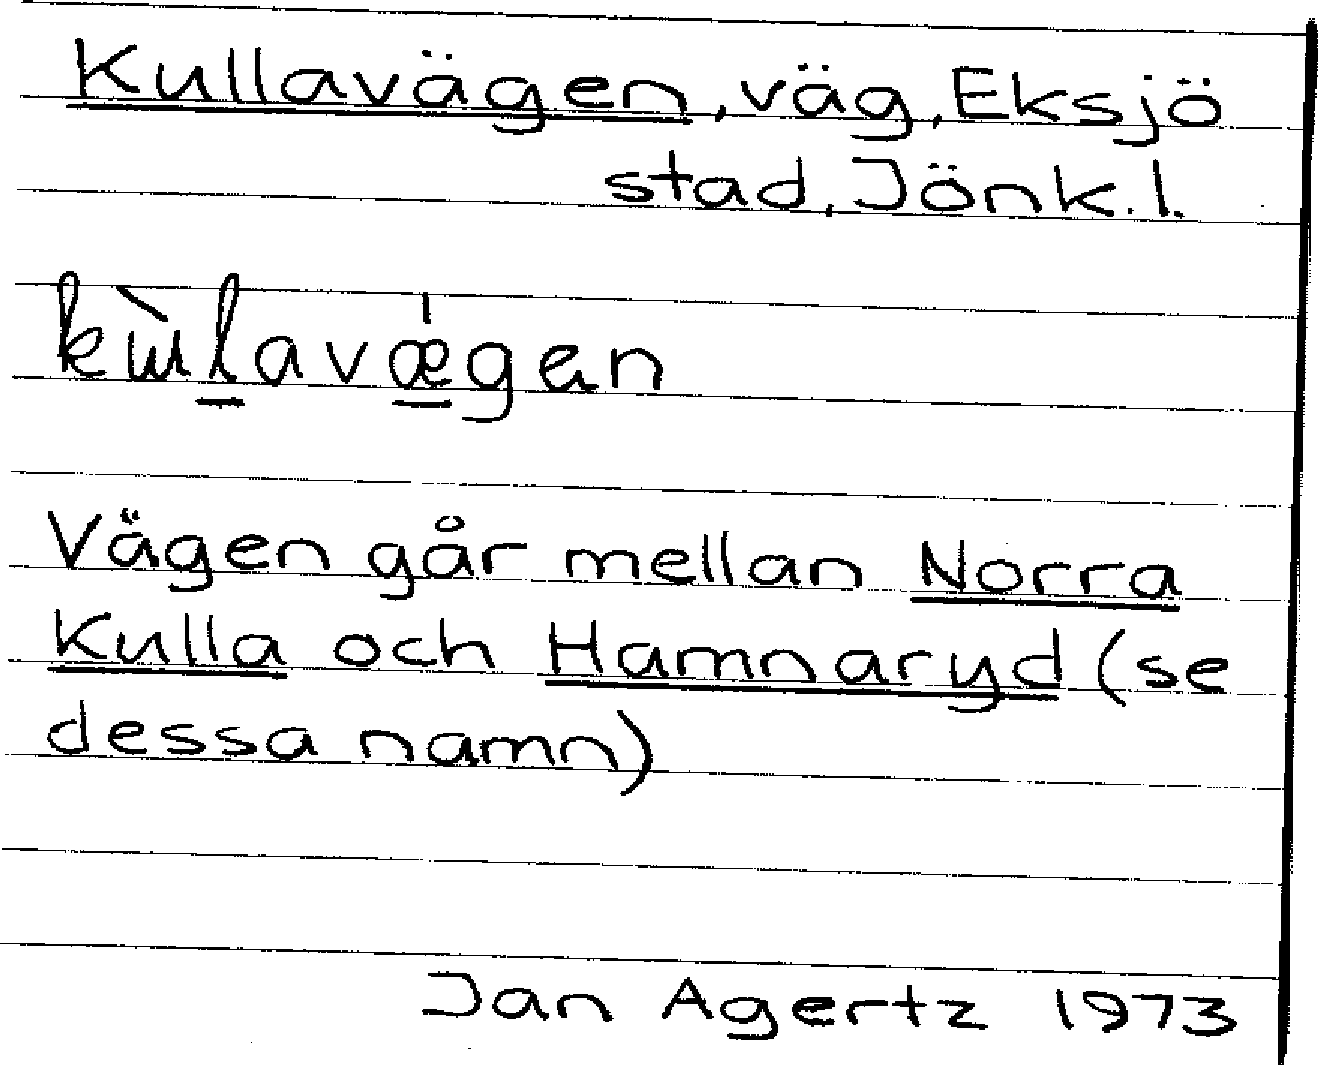 Kullavägen, väg, Eksjö
stad, Jönk. l.
kùlavǽgən
Vägen går mellan Norra
Kulla och Hamnaryd (se
dessa namn)
Jan Agertz 1973